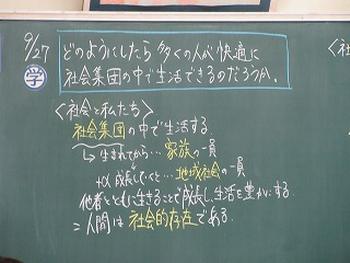 9/27 どのようにしたら多くの人が快適に
学 社会集団の中で生活できるのだろうか。
<社会と私たち>
社会集団の中で生活する。
↳生まれてから…家族の一員
+α成長していくと…地域社会の一員
他者とともに生きることで成長し、生活を豊かにする。
=人間は社会的存在である。
<社